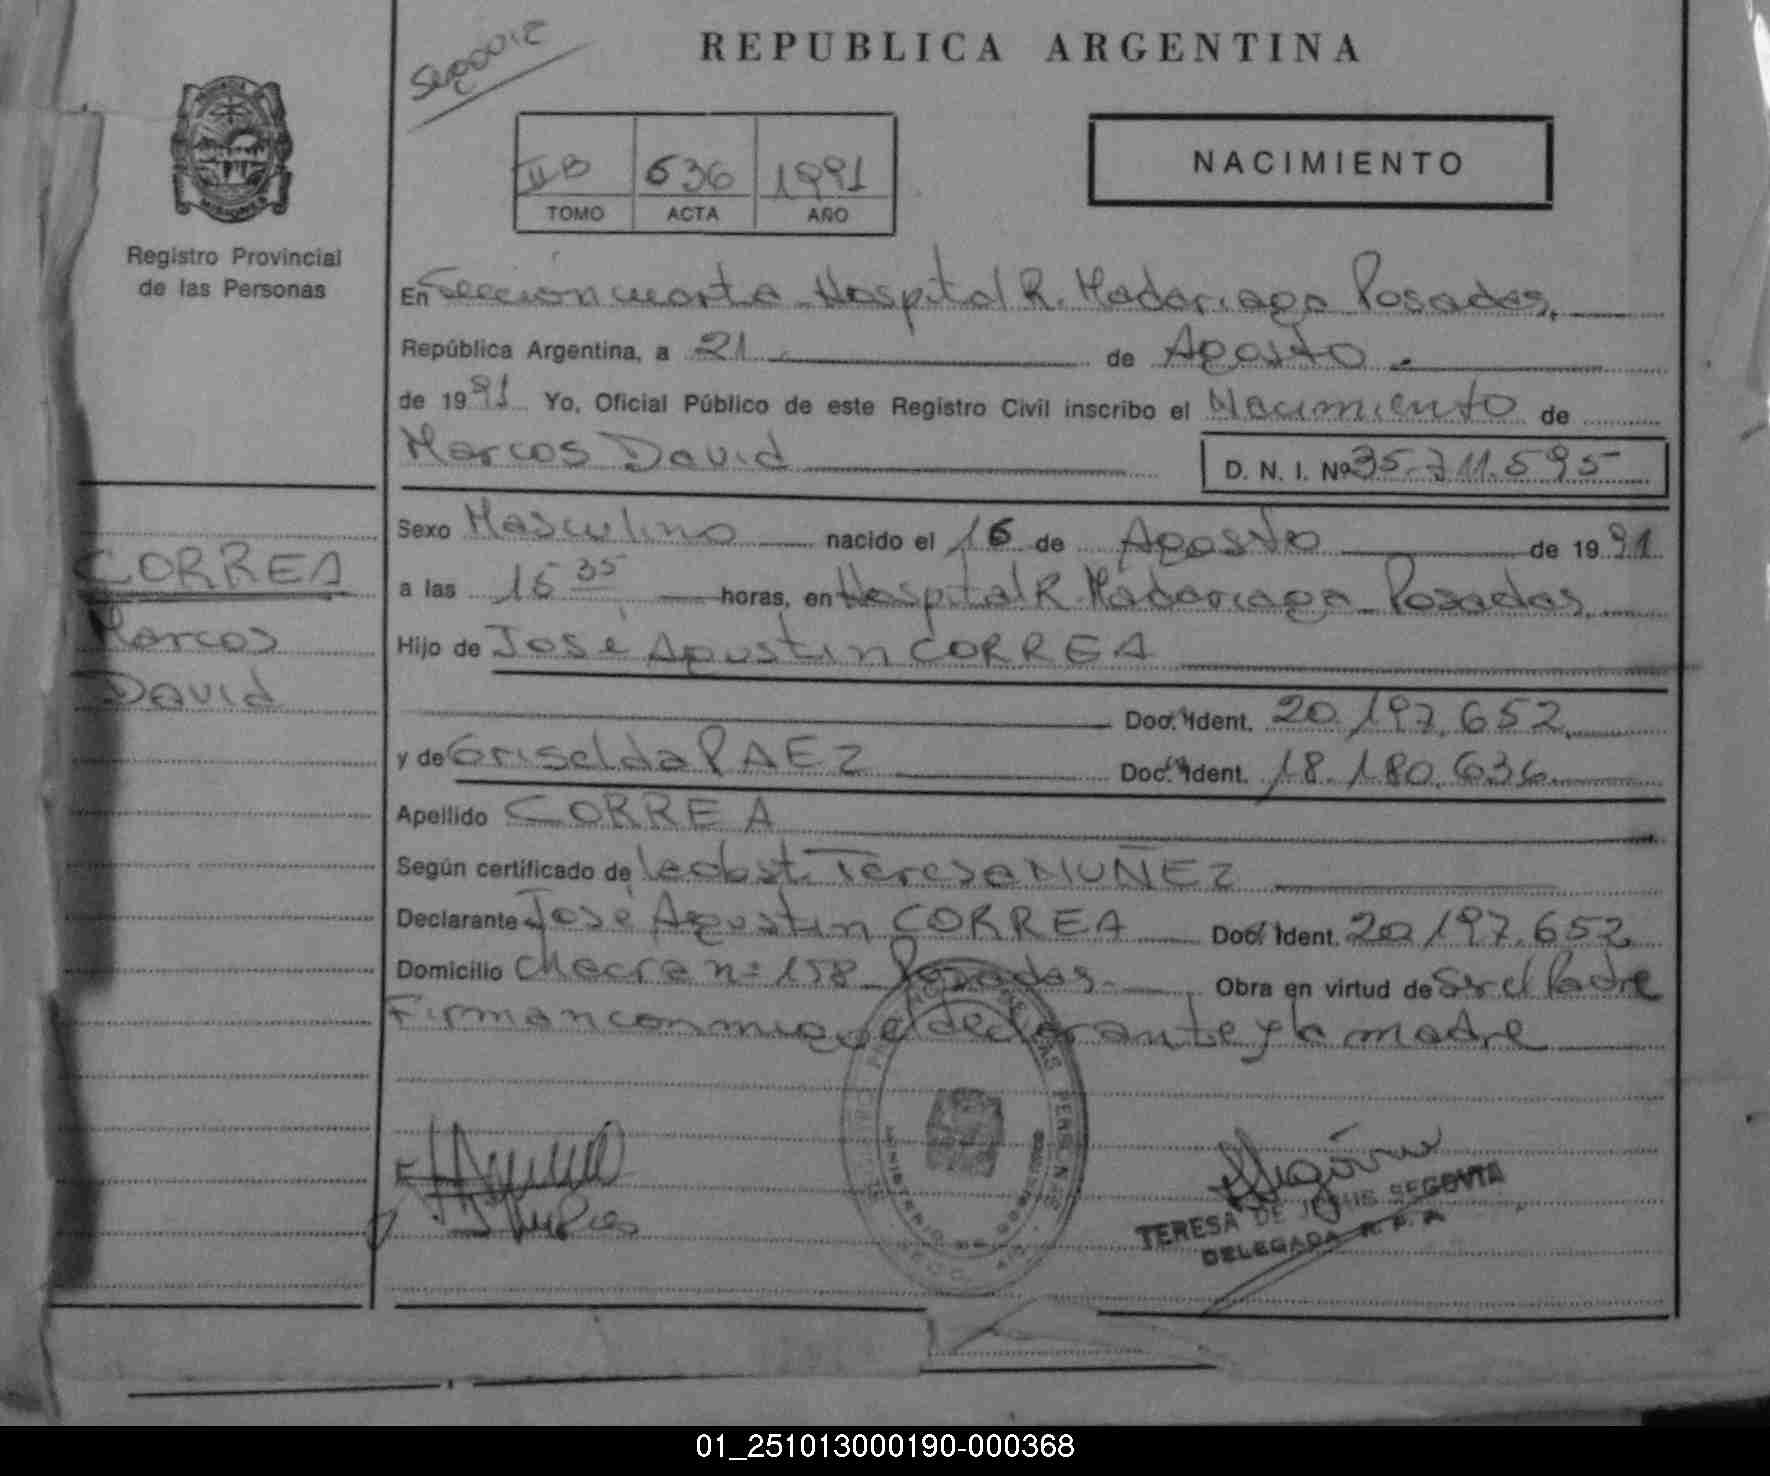 REPUBLICA ARGENTINA
IIB 636 1991
TOMO ACTA AÑO
NACIMIENTO
MISIONES
Registro Provincial
de las Personas
En Sección cuarta Hospital R. Madariaga Posadas,
República Argentina, a 21 de Agosto
de 1991 Yo, Oficial Público de este Registro Civil inscribo el Nacimiento de
Marcos David
D. N. I. Nº 35.711.595
CORREA
Marcos
David
Sexo Masculino nacido el 16 de Agosto de 1991
a las 15 35 horas, en Hospital R. Madariaga Posadas,
Hijo de José Agustin CORREA
Doc. Ident. 20.197.652
y de Griselda PAEZ Doc. Ident. 18.180.636
Apellido CORREA
Según certificado de la obst. Teresa NUÑEZ
Declarante José Agustin CORREA Doc. Ident. 20.197.652
Domicilio Chacra nº 158 Posadas Obra en virtud de Ser el Padre
Firman conmigo el declarante y la madre
TERESA DE JESUS SEGOVIA
DELEGADA R. P. P.
01_251013000190-000368